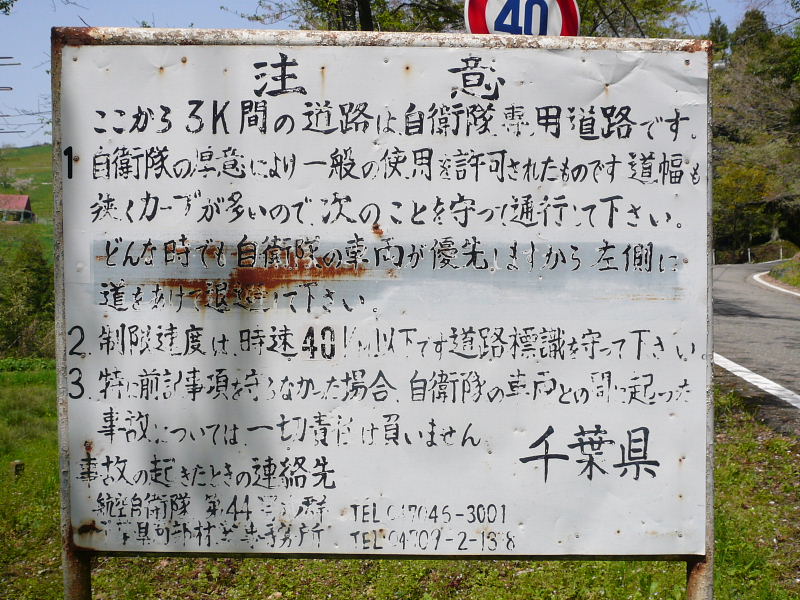 40
注意
ここから3K間の道路は、自衛隊専用道路です。
1 自衛隊の厚意により一般の使用を許可されたものです 道幅も
狭くカーブが多いので、次のことを守って通行して下さい。
どんな時でも自衛隊の車両が優先しますから左側に
道をあけて 下さい。
2. 制限速度は、時速40Km以下です道路標識を守って下さい。
3. 特に前記事項を守らなかった場合、自衛隊の車両との間に起った
事故については、一切責任は負いません
千葉県
事故の起きたときの連絡先
航空自衛隊 第44 群 TEL 3001
TEL